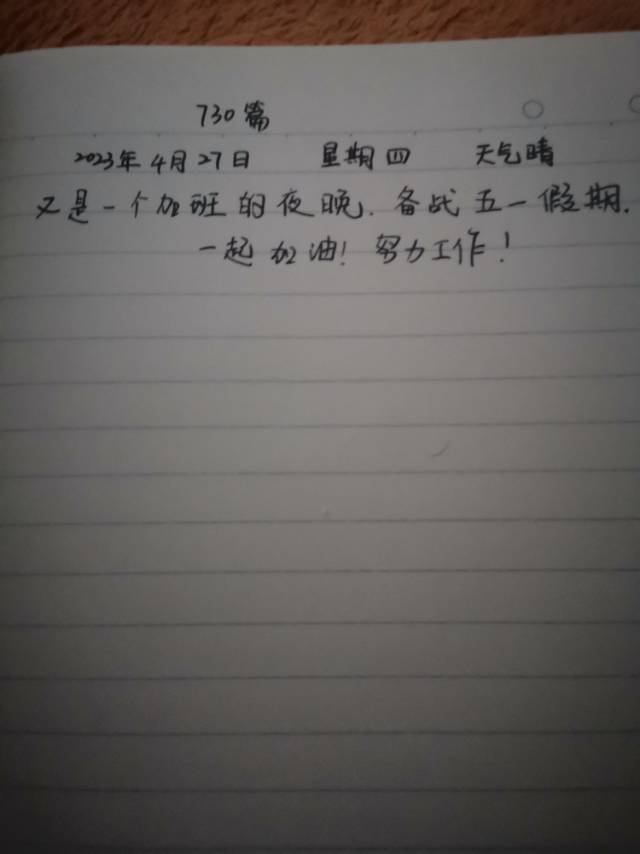 730篇
2023年4月27日 星期四 天气晴
又是一个加班的夜晚.备战五一假期.
一起加油!努力工作!